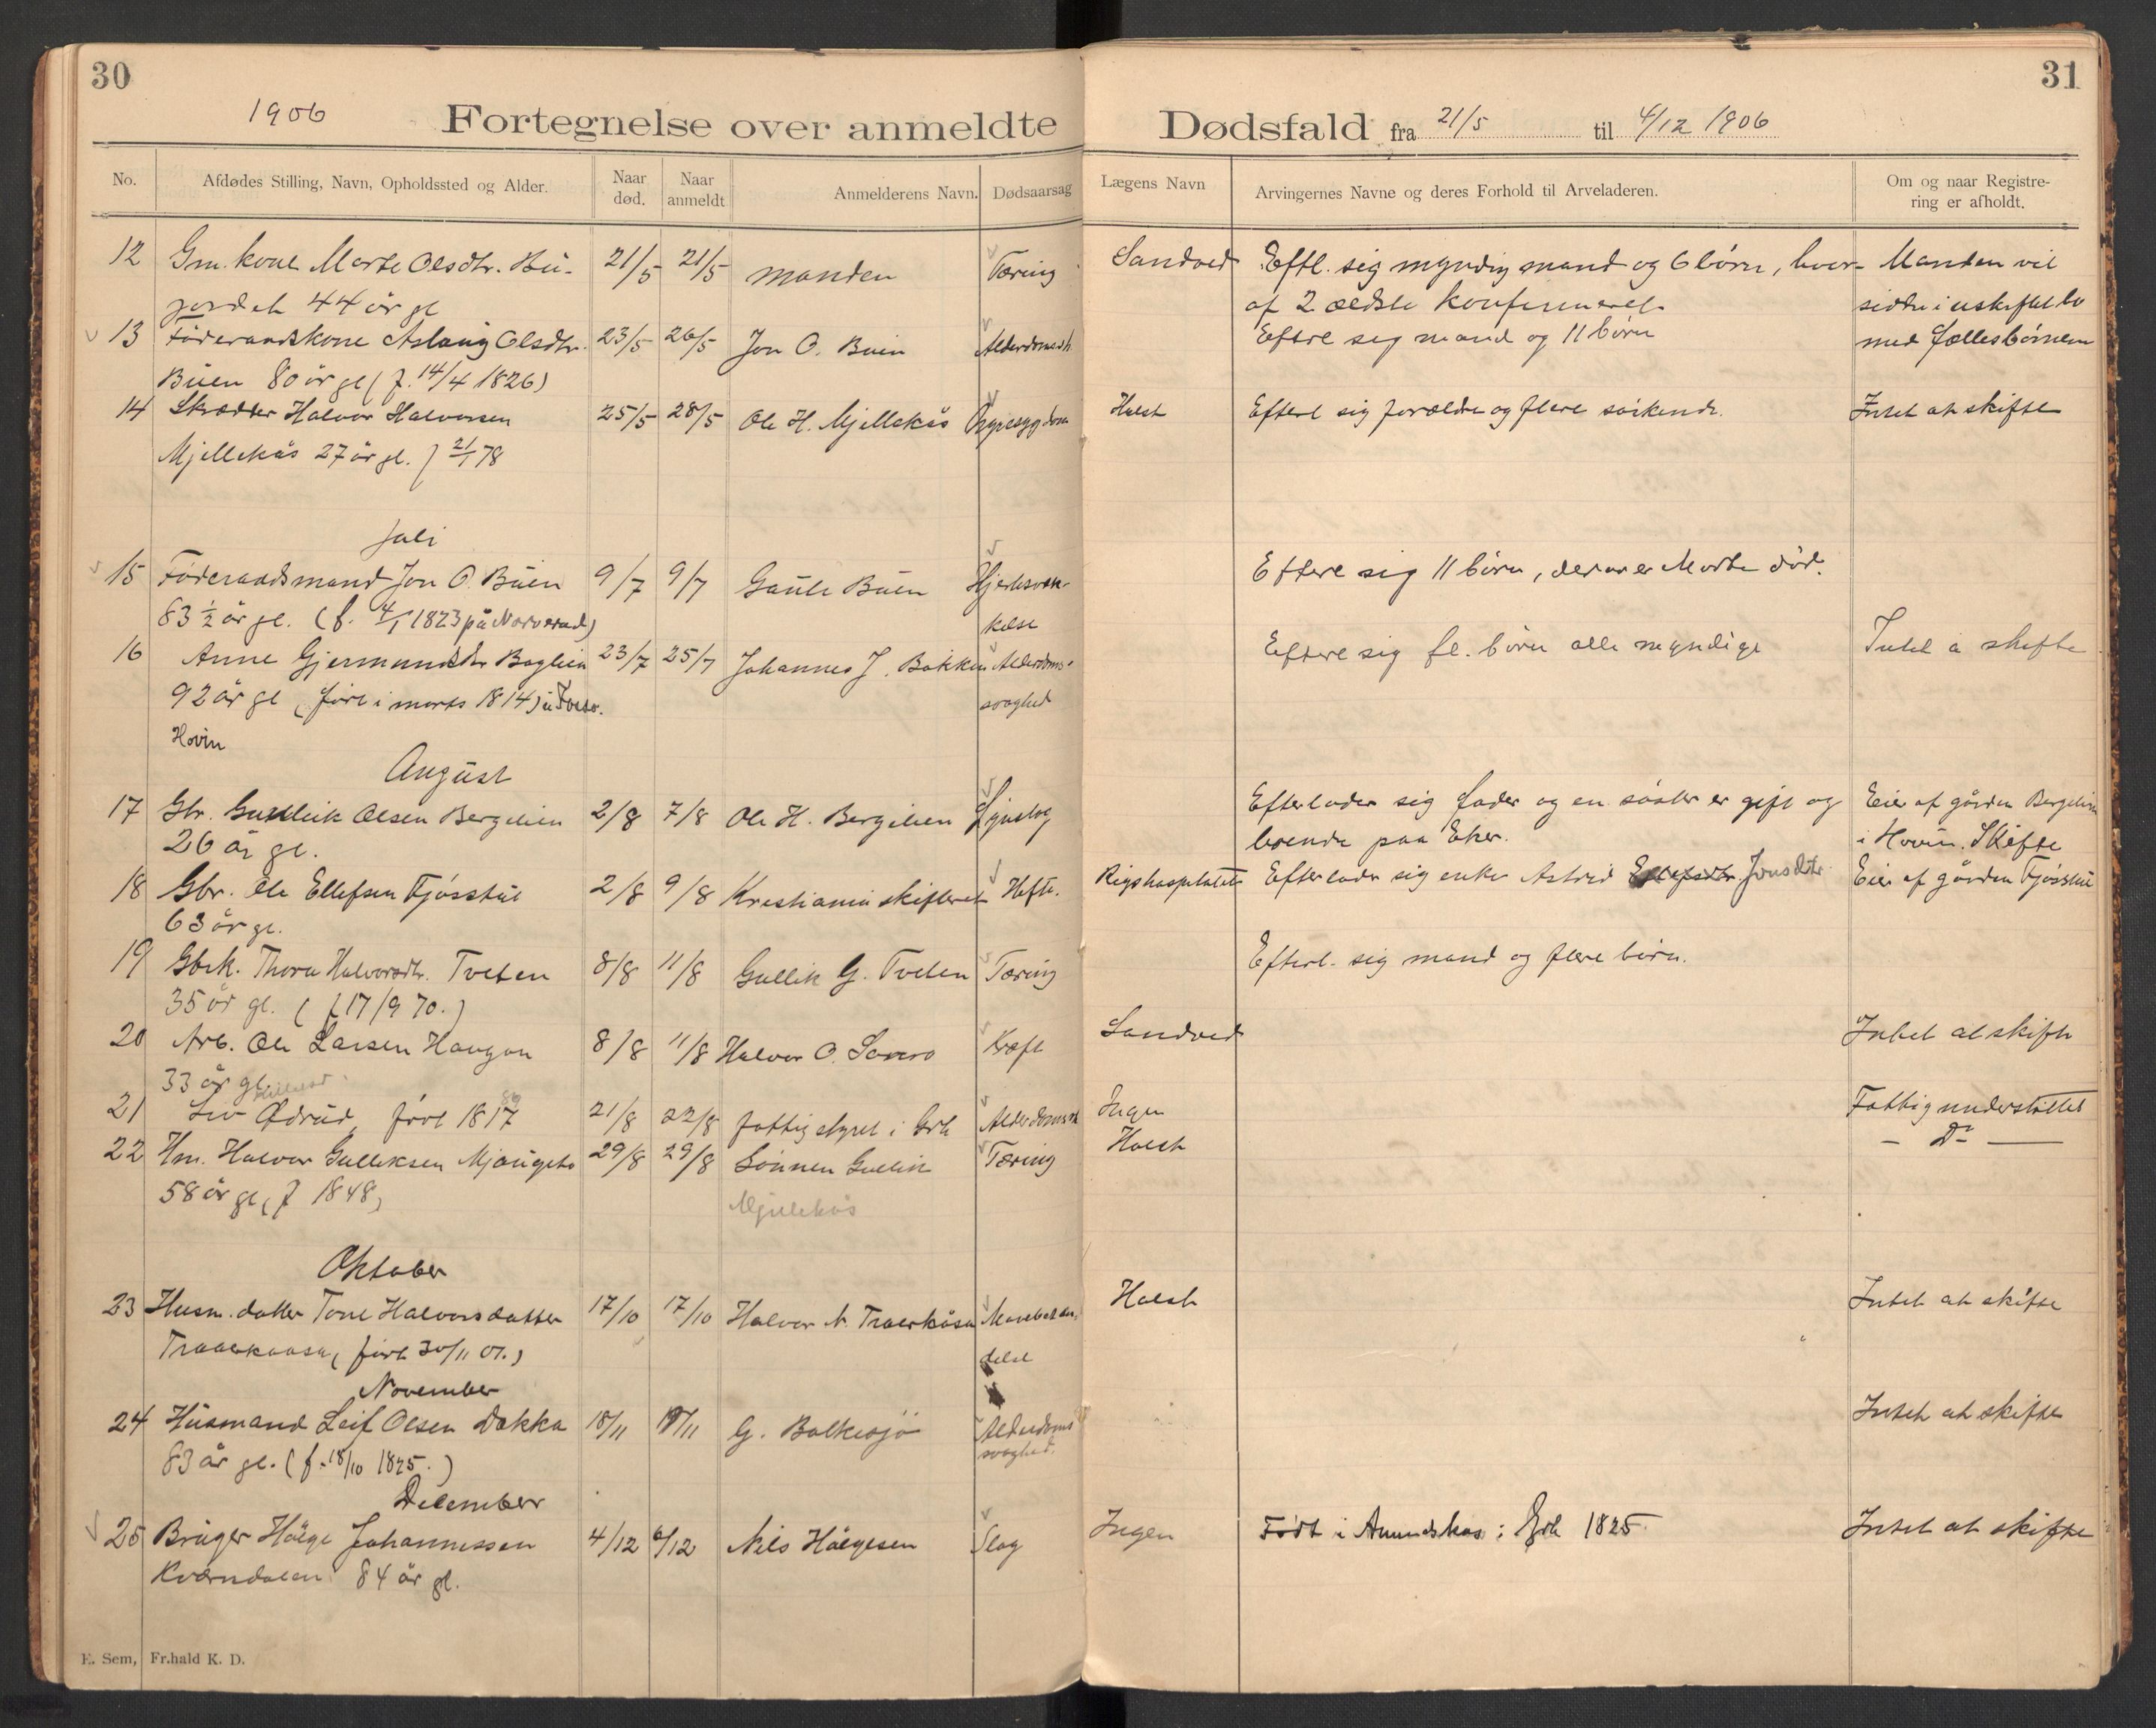 30
1906
Fortegnelse over anmeldte
No. Afdødes Stilling, Navn, Opholdssted og Alder. Naar død. Naar anmeldt Anmelderens Navn. Dødsaarsag
12 Gm. kone Marte Olsdtr. Bu- 21/5 21/5 manden Tæring
jordet 44 år gl
13 Føderaadskone Aslaug Olsdtr. 23/5 26/5 Jon O. Buin Alderdomssh
Büen 80 år gl (f. 14/4 1826)
14 Skrædder Halvor Halvorsen 25/5 28/5 Ole H. Mjellekås
Mjellekås 27 år gl. f 21/1 78
Juli
15 Føderaadsmand Jon O. Büen 9/7 9/7 Gaute Büen Hjertesvæk-
83 ½ år gl. (f. 4/1 1823 på Norerud) kelse
16 Anne Gjermundsdtr Bøglien 23/7 25/7 Johannes J. Bakken Alderdoms-
92 år gl (født i marts 1814) svaghed
Hovin
August
17 Gbr. Gullleik Olsen Bergelien 2/8 7/8 Ole H. Bergelien Lynslag
26 år gl.
18 Gbr. Ole Ellefsen Fjøsstul 2/8 9/8 Kristiania skifteret Hofte.
63 år gl.
19 Gbrk. Thora Halvorsdtr. Tveten 8/8 11/8 Gullik G. Tveten Tæring
35 år gl. (f 17/9 70.)
20 Arb. Ole Larsen Haugan 8/8 11/8 Halvor O. Kræft
33 år gl.
21 Liv Ødrud, født 1817 21/8 22/8 fattigstyret i Grb Alderdomssv
22 Hm. Halvor Gulliksen 29/8 29/8 Sønnen Gullik Tæring
58 år gl (f 1848) Mjellekås
Oktober
23 Husm. datter Tone Halvorsdatter 17/10 17/10 Halvor N. Traerkåsa
Traaerkaasa, (født 30/11 01.) delse
November
24 Husmand Leif Olsen Dokka 18/11 19/11 G. Bolkesjø Alderdoms
83 år gl. (f. 18/10 1825.) svaghed.
December
25 Bruger Hølge Johannessen 4/12 6/12 Nils Hølgesen Slag
Kværndalen 84 år gl.
E. Sem, Fr.hald K. D.
31
Dødsfald fra 21/5 til 4/12 1906
Lægens Navn Arvingernes Navne og deres Forhold til Arveladeren. Om og naar Registrering er afholdt.
Sandved Eftl. sig myndig mand og 6 børn, hvor- Manden vil
af 2 ældste konfirmeret. sidde i uskiftet bo
Efterl sig mand og 11 børn med fællesbørnene
Holst Efterl sig forældre og flere søskende. Intet at skifte
Efterl sig 11 børn, derav er Marte død.
Efterl sig fl. børn alle myndige Intet å skifte
Efterlader sig fader og en søster er gift og Eier af gården Bergelien
boende paa Eker. i Hovin. Skifte
Rigshospitalet Efterlader sig enke Astrid Jonsdtr Eier af gården Fjøsstul
Efterl. sig mand og flere børn.
Sandved Intet at skifte
Ingen Fattigunderstøttet
Holst – Do –
Holst Intet at skifte
Intet at skifte
Ingen Født i Amundskas i Grb 1825. Intet at skifte